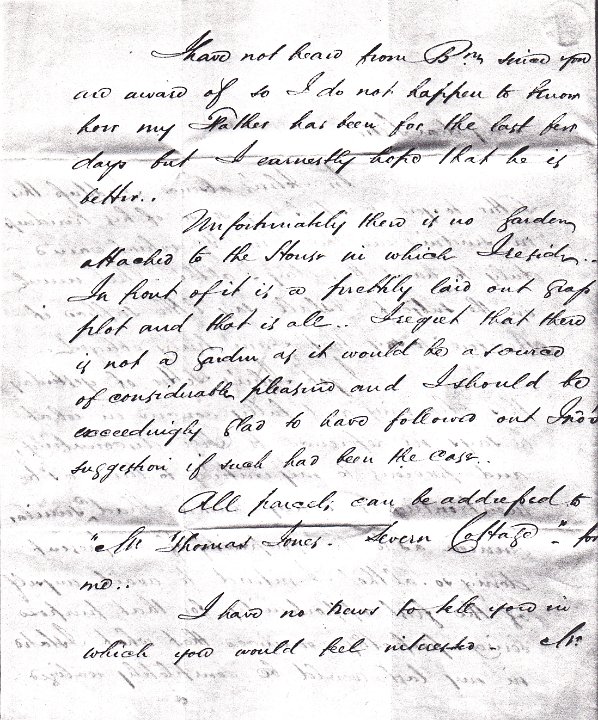 I have not heard from B^m since you
are aware of so I do not happen to know
how my Father has been for the last few
days but I earnestly hope that he is
better..
Unfortunately there is no garden
attached to the House in which I reside..
In front of it is a prettily laid out grass
plot and that is all.. I regret that there
is not a garden as it would be a source
of considerable pleasure and I should be
exceedingly glad to have followed out
suggestion if such had been the case.
All parcels can be addressed to
"Mr Thomas Jones. Severn Cottage." for
me..
I have no news to tell you in
which you would feel interested Mr.